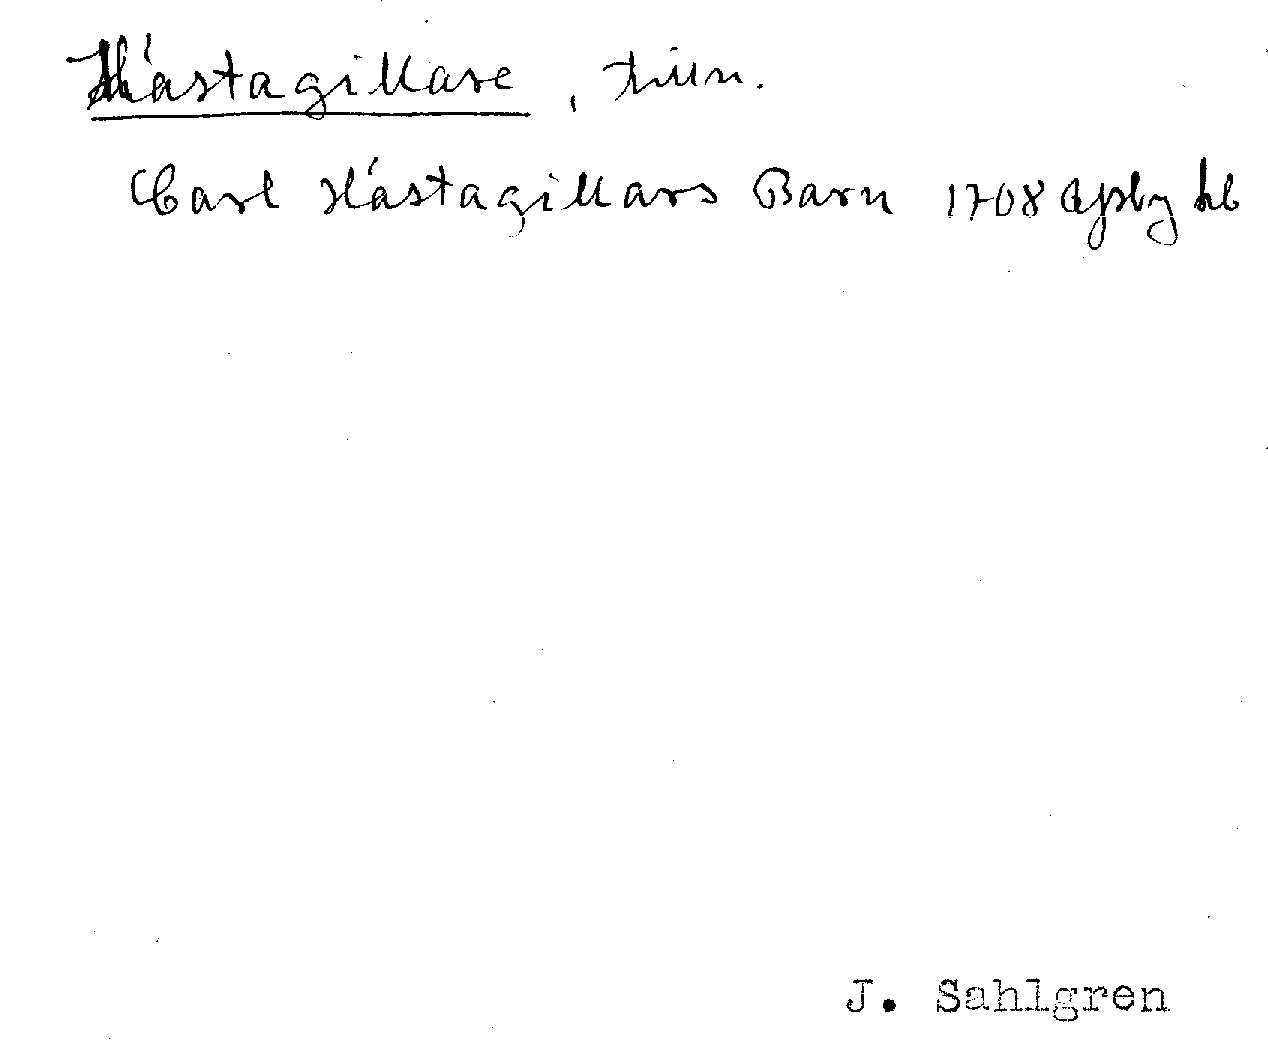 Hästagillare, tilln.
Carl Hästagillars Barn 1708 Gysby hb
J. Sahlgren